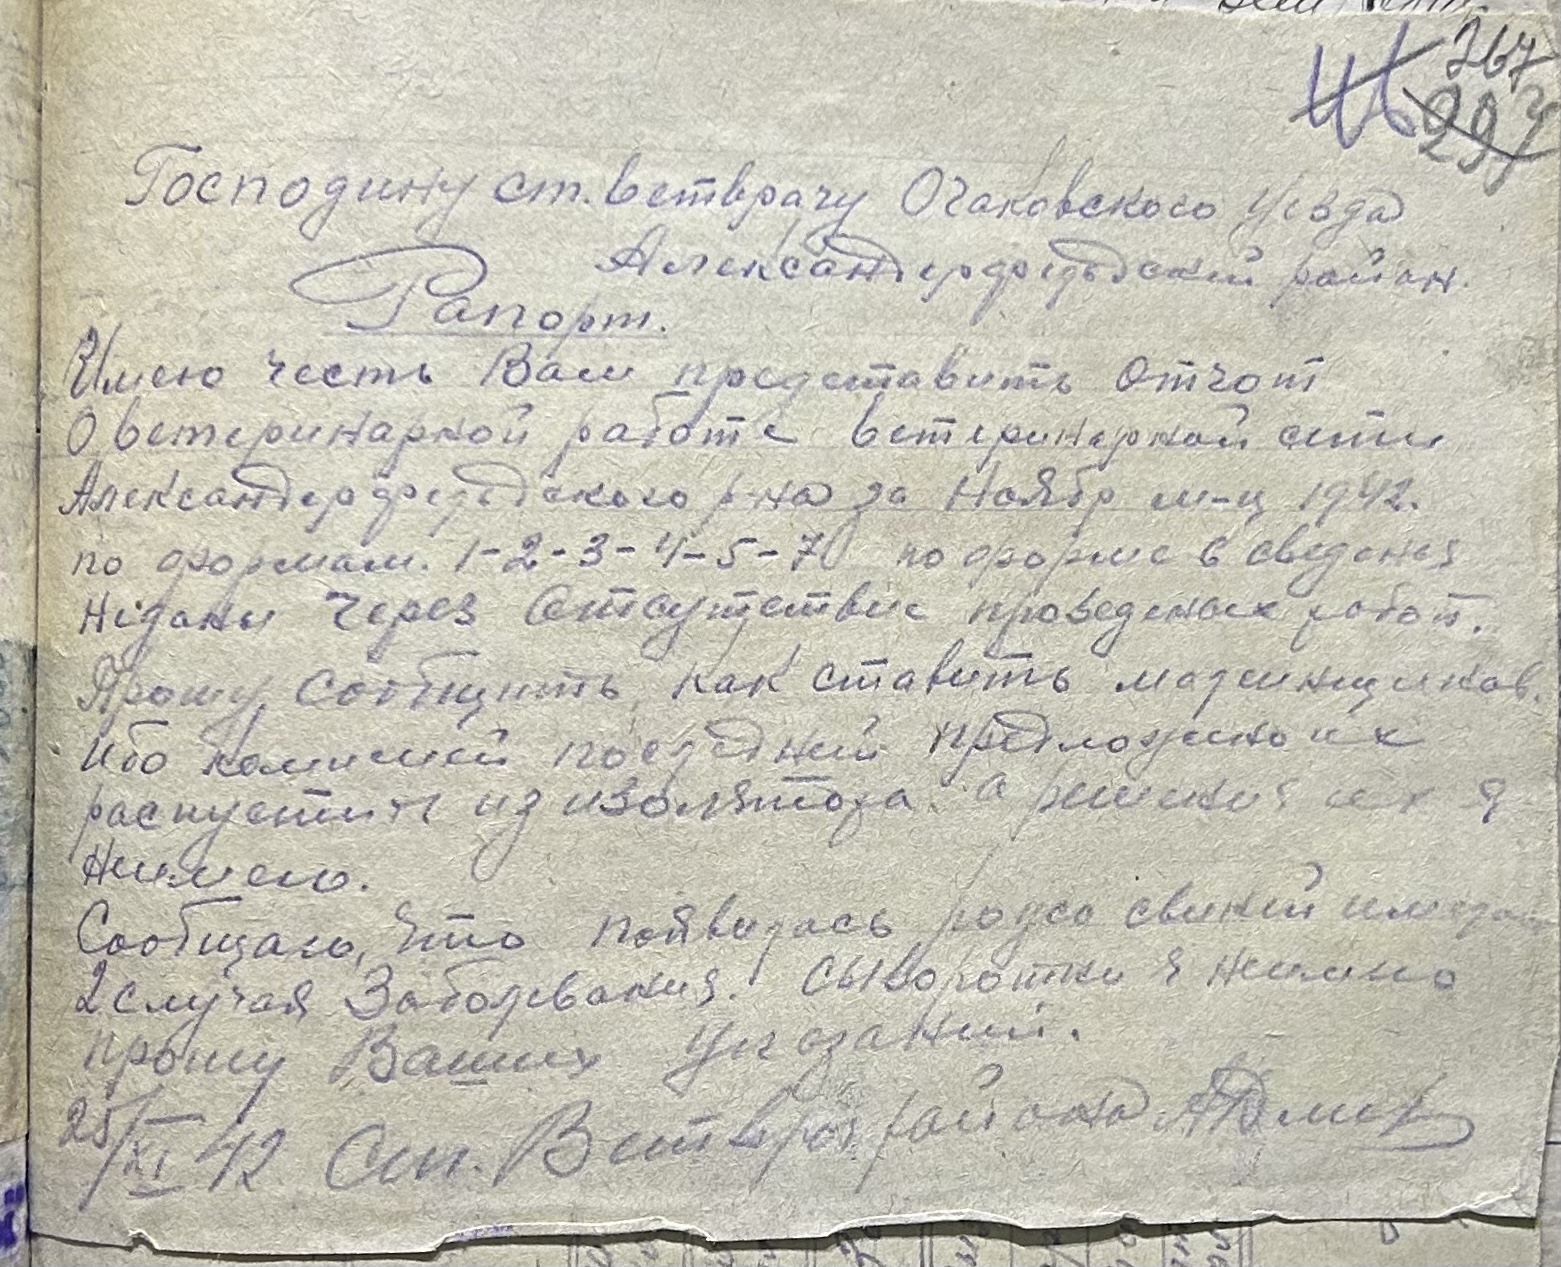 367
297
Господину ст. Ветврачу Очаковского уезда
Александерфельдский район.
Рапорт.
Имею честь Вам представить Отчот
О ветеринарной работе ветеринарной сети
Александерфельдского р-на за Ноябр м-ц 1942.
по формам. 1-2-3-4-5-7 по форме 6 сведения
Нідани через Отсутствие проведеных работ.
Прошу Сообщить как ставить малеинщиков.
Ибо комисией последний предложено их
распустить из изолятора. а решения их я
Неимею.
Сообщаю, что появилась рожа свиней имеем
2 случая Заболевания. Сыворотки я неимею
прошу Ваших Указаний.
25/XI 42 Ст. Ветврач района